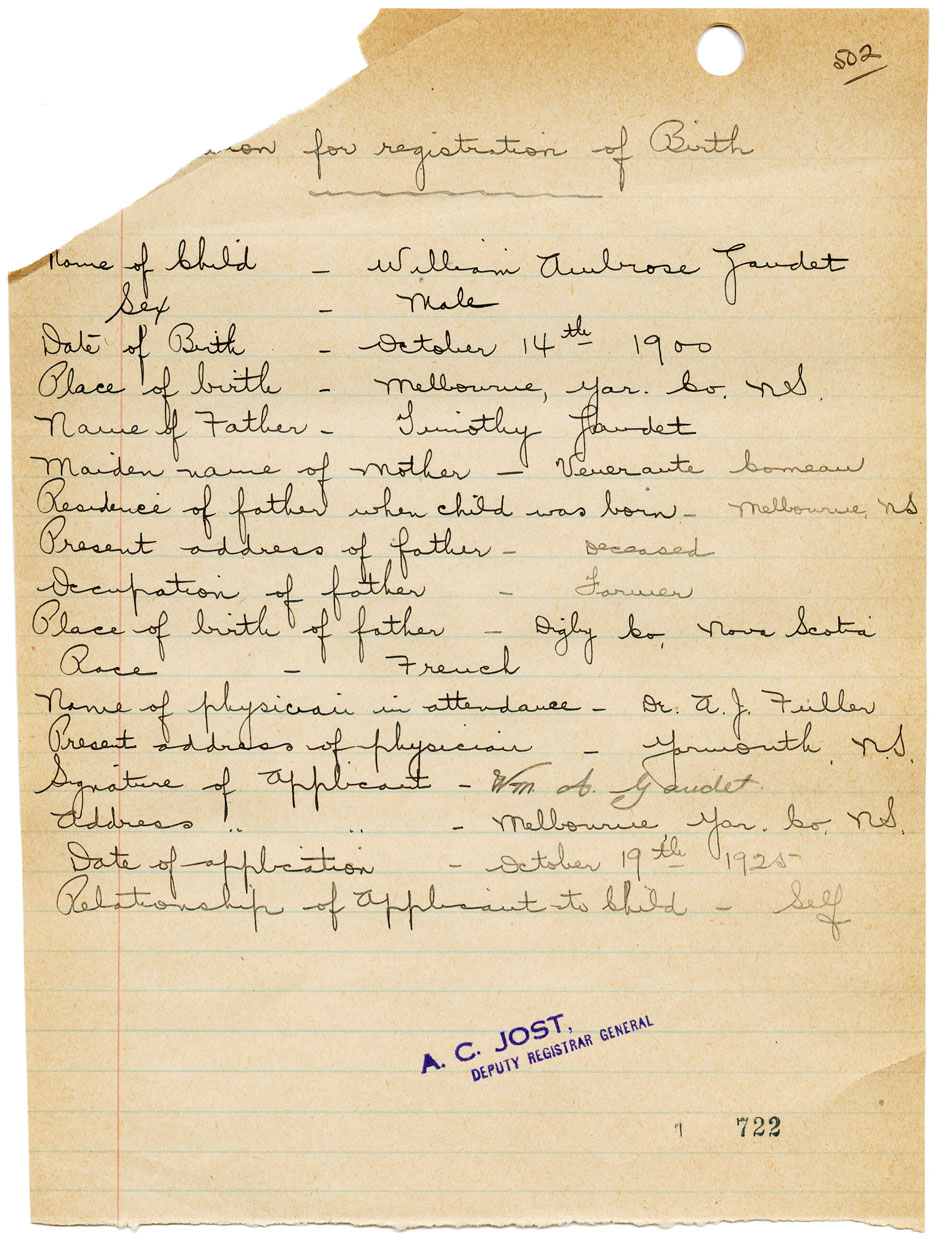 502
for registration of Birth
Name of Child - William Ambrose Gaudet
Sex - Male
Date of Birth - October 14th 1900
Place of birth - Melbourne, Yar. Co. N.S.
Name of Father - Timothy Gaudet
Maiden name of Mother - Venerante Comeau
Residence of father when child was born - Melbourne, NS
Present address of father - Deceased
Occupation of father - Farmer
Place of birth of father - Digby Co, Nova Scotia
Race - French
Name of physician in attendance - Dr. A. J. Fuller
Present address of physician - Yarmouth, N.S.
Signature of Applicant - Wm. A. Gaudet.
Address " " - Melbourne, Yar. Co, N.S.
Date of application - October 19th 1925
Relationship of Applicant to Child - Self
A. C. JOST,
DEPUTY REGISTRAR GENERAL
722